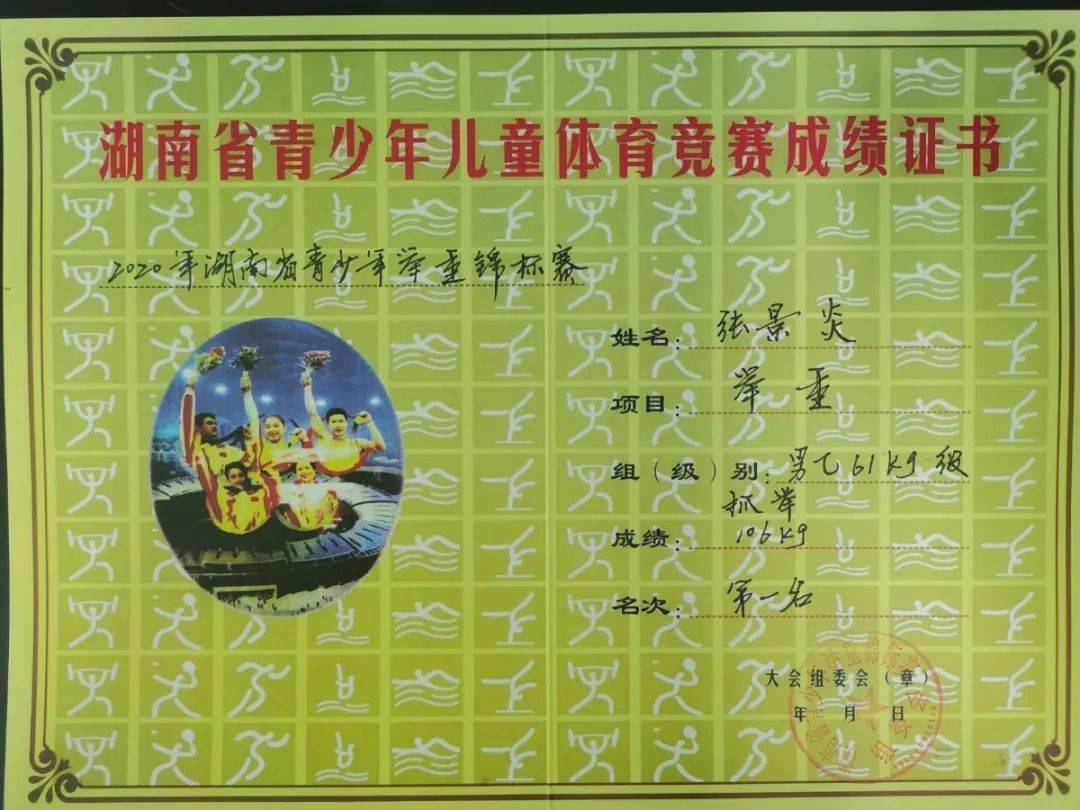 湖南省青少年儿童体育竞赛成绩证书
2020年湖南省青少年举重锦标赛
姓名：张景炎
项目：举重
组（级）别：男乙61kg级
抓举
成绩：106kg
名次：第一名
大会组委会（章）
年 月 日